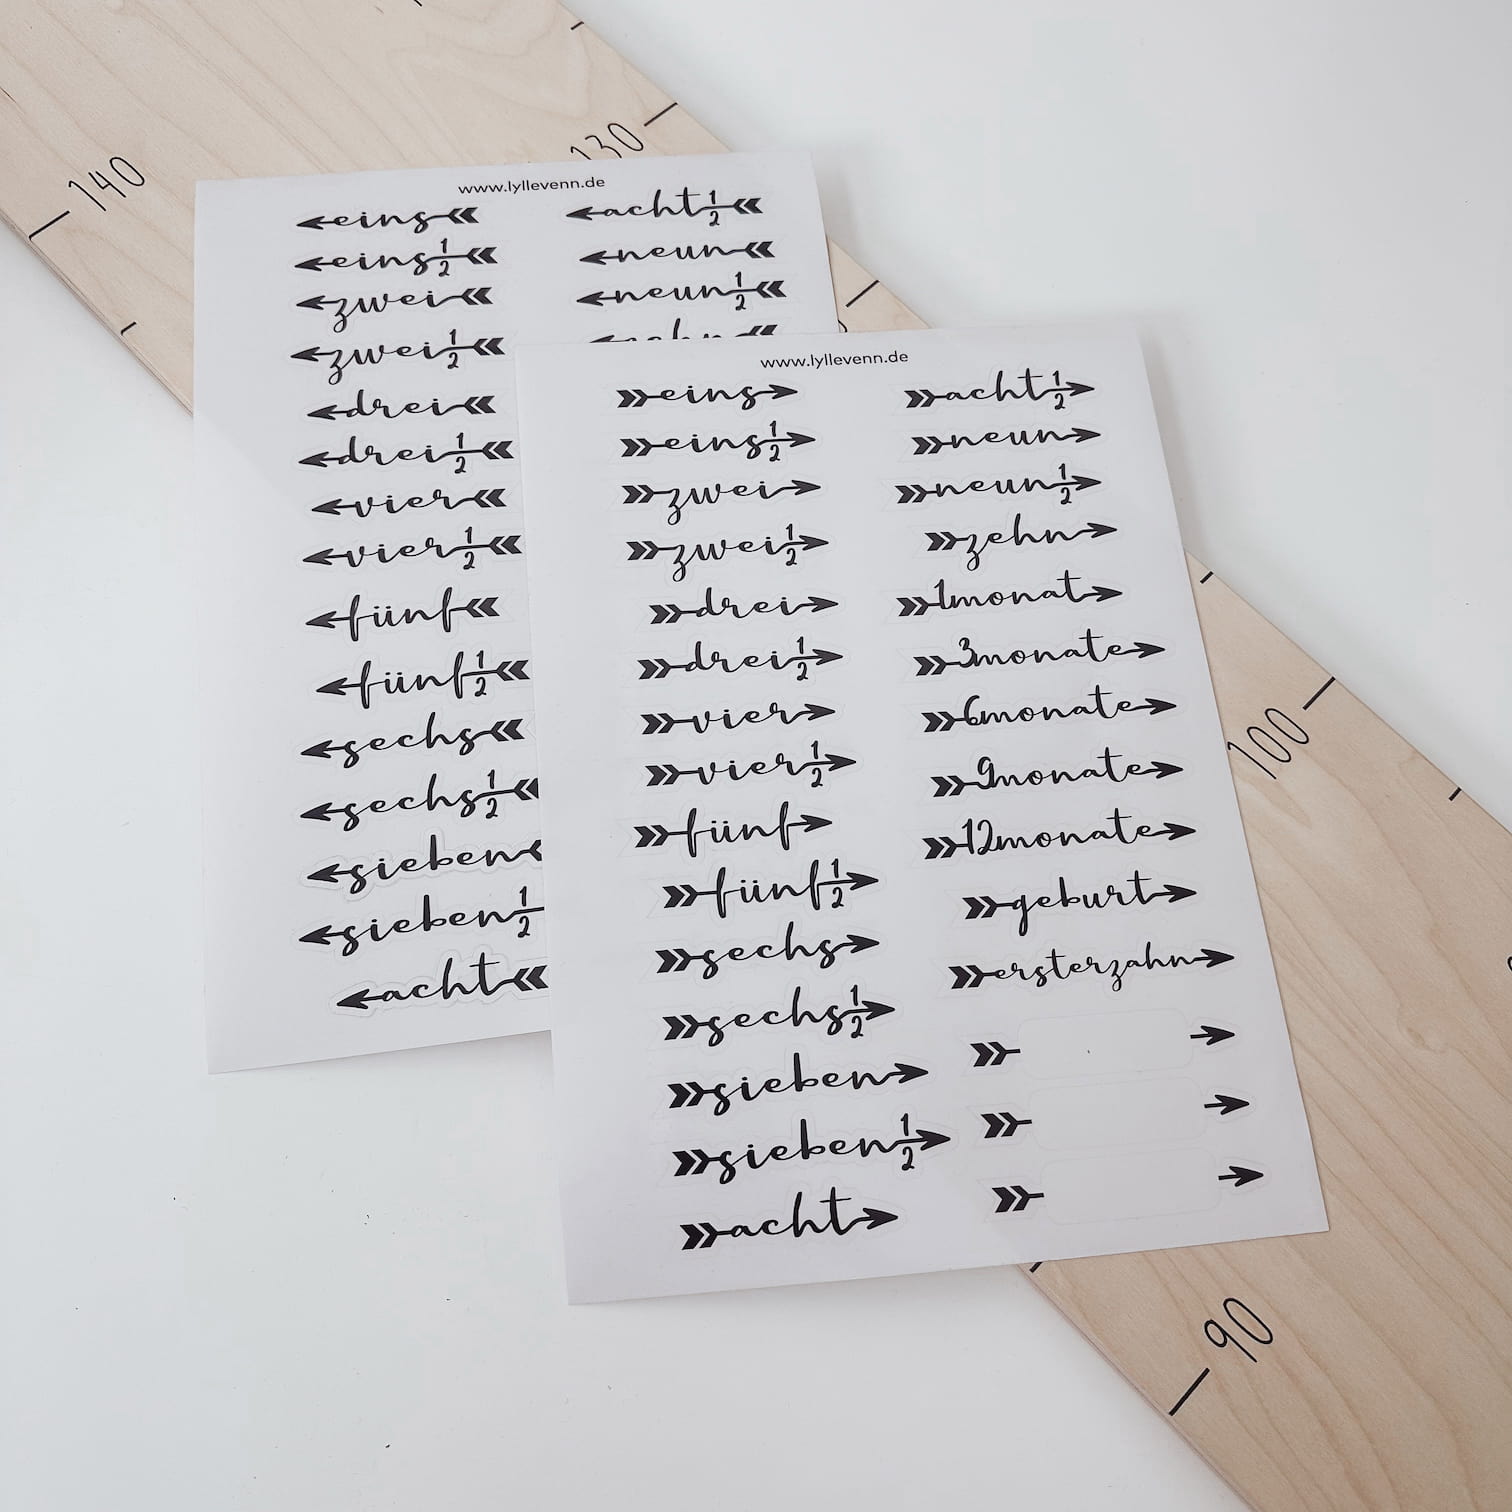 140
130
www.lyllevenn.de
eins
eins 1/2
zwei
zwei 1/2
drei
drei 1/2
vier
vier 1/2
fünf
fünf 1/2
sechs
sechs 1/2
sieben
sieben 1/2
acht
acht 1/2
neun
neun 1/2
www.lyllevenn.de
eins
eins 1/2
zwei
zwei 1/2
drei
drei 1/2
vier
vier 1/2
fünf
fünf 1/2
sechs
sechs 1/2
sieben
sieben 1/2
acht
acht 1/2
neun
neun 1/2
zehn
1monat
3monate
6monate
9monate
12monate
geburt
ersterzahn
100
90